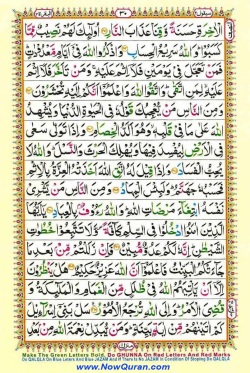 سيقول ٢ ٣٠ البقرة ٢
الْاٰخِرَةِ حَسَنَةً وَّقِنَا عَذَابَ النَّارِ اُولٰٓئِكَ لَهُمْ نَصِيْبٌ مِّمَّا
كَسَبُوْا وَاللّٰهُ سَرِيْعُ الْحِسَابِ وَاذْكُرُوا اللّٰهَ فِىْٓ اَيَّامٍ مَّعْدُوْدٰتٍ
فَمَنْ تَعَجَّلَ فِىْ يَوْمَيْنِ فَلَآ اِثْمَ عَلَيْهِ وَمَنْ تَاَخَّرَ فَلَآ اِثْمَ
عَلَيْهِ لِمَنِ اتَّقٰى وَاتَّقُوا اللّٰهَ وَاعْلَمُوْٓا اَنَّكُمْ اِلَيْهِ تُحْشَرُوْنَ
وَمِنَ النَّاسِ مَنْ يُّعْجِبُكَ قَوْلُهٗ فِى الْحَيٰوةِ الدُّنْيَا وَيُشْهِدُ
اللّٰهَ عَلٰى مَا فِىْ قَلْبِهٖ وَهُوَ اَلَدُّ الْخِصَامِ وَاِذَا تَوَلّٰى سَعٰى
فِى الْاَرْضِ لِيُفْسِدَ فِيْهَا وَيُهْلِكَ الْحَرْثَ وَالنَّسْلَ وَاللّٰهُ لَا
يُحِبُّ الْفَسَادَ وَاِذَا قِيْلَ لَهُ اتَّقِ اللّٰهَ اَخَذَتْهُ الْعِزَّةُ بِالْاِثْمِ
فَحَسْبُهٗ جَهَنَّمُ وَلَبِئْسَ الْمِهَادُ وَمِنَ النَّاسِ مَنْ يَّشْرِىْ
نَفْسَهُ ابْتِغَآءَ مَرْضَاتِ اللّٰهِ وَاللّٰهُ رَءُوْفٌۢ بِالْعِبَادِ يٰٓاَيُّهَا
الَّذِيْنَ اٰمَنُوا ادْخُلُوْا فِى السِّلْمِ كَآفَّةً وَّلَا تَتَّبِعُوْا خُطُوٰتِ
الشَّيْطٰنِ اِنَّهٗ لَكُمْ عَدُوٌّ مُّبِيْنٌ فَاِنْ زَلَلْتُمْ مِّنْۢ بَعْدِ مَا
جَآءَتْكُمُ الْبَيِّنٰتُ فَاعْلَمُوْٓا اَنَّ اللّٰهَ عَزِيْزٌ حَكِيْمٌ هَلْ يَنْظُرُوْنَ
اِلَّآ اَنْ يَّاْتِيَهُمُ اللّٰهُ فِىْ ظُلَلٍ مِّنَ الْغَمَامِ وَالْمَلٰٓئِكَةُ وَقُضِىَ
الْاَمْرُ وَاِلَى اللّٰهِ تُرْجَعُ الْاُمُوْرُ سَلْ بَنِىْٓ اِسْرَآءِيْلَ
كَمْ اٰتَيْنٰهُمْ مِّنْ اٰيَةٍۭ بَيِّنَةٍ وَمَنْ يُّبَدِّلْ نِعْمَةَ اللّٰهِ مِنْۢ بَعْدِ
Make The Green Letters Bold, Do GHUNNA On Red Letters And Red Marks
Do QALQLA On Blue Letters And Blue JAZAM And If There Is No JAZAM In Condition Of Stoping Do QALQLA
www.NowQuran.com